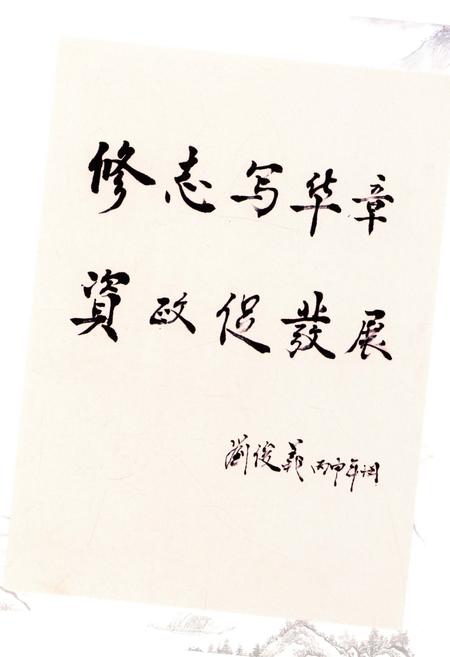 修志写华章
資政促發展
劉俊義 丙申年